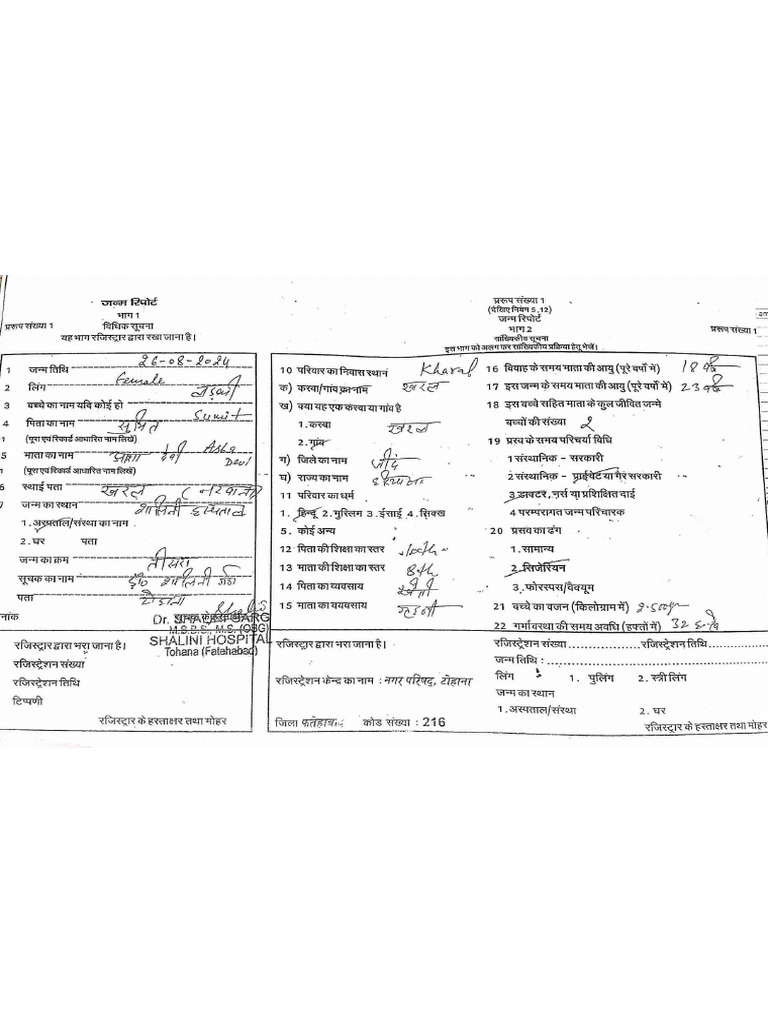 जन्म रिपोर्ट
भाग 1
प्ररूप संख्या 1 विधिक सूचना
यह भाग रजिस्ट्रार द्वारा रखा जाना है।
1 जन्म तिथि 26-08-2024
2 लिंग Female लड़की
3 बच्चे का नाम यदि कोई हो
4 पिता का नाम सुमित Sumit
(पूरा एवं रिकार्ड आधारित नाम लिखें)
5 माता का नाम आशा देवी Asha Devi
(पूरा एवं रिकार्ड आधारित नाम लिखें)
6 स्थाई पता खरल (नरवाना)
जन्म का स्थान शालिनी हस्पताल
1. अस्पताल/संस्था का नाम
2. घर पता
जन्म का क्रम तीसरा
सूचक का नाम डॉ० शालिनी
पता टोहाना
नांक
Dr. SHALINI GARG
M.B.B.S., M.S. (OBG)
SHALINI HOSPITAL
Tohana (Fatehabad)
रजिस्ट्रार द्वारा भरा जाना है।
रजिस्ट्रेशन संख्या
रजिस्ट्रेशन तिथि
टिप्पणी
रजिस्ट्रार के हस्ताक्षर तथा मोहर
प्ररूप संख्या 1
(देखिए नियम 5,12)
जन्म रिपोर्ट
भाग 2 प्ररूप संख्या 1
सांख्यिकीय सूचना
इस भाग को अलग कर सांख्यिकीय प्रक्रिया हेतू भेजें।
10 परिवार का निवास स्थान Kharal
क) कस्बा/गांव का नाम खरल
ख) क्या यह एक कस्बा या गांव है
1. कस्बा खरल
2. गांव
ग) जिले का नाम जींद
घ) राज्य का नाम हरियाणा
11 परिवार का धर्म
1. हिन्दू 2. मुस्लिम 3. ईसाई 4. सिक्ख
5. कोई अन्य
12 पिता की शिक्षा का स्तर 10th
13 माता का शिक्षा का स्तर 8th
14 पिता का व्यवसाय खेती
15 माता का ययवसाय गृहणी
16 विवाह के समय माता की आयु (पूरे वर्षो में) 18 वर्ष
17 इस जन्म के समय माता की आयु (पूरे वर्षो में) 23 वर्ष
18 इस बच्चे सहित माता के कुल जीवित जन्मे
बच्चों की संख्या 2
19 प्रस्व के समय परिचर्या विधि
1 संस्थानिक - सरकारी
2 संस्थानिक - प्राईवेट या गैर सरकारी
3 डाक्टर, नर्स या प्रशिक्षित दाई
4 परम्परागत जन्म परिचारक
20 प्रसव का ढंग
1. सामान्य
2. सिजेरियन
3. फोरस्पस/वैक्यूम
21 बच्चे का वजन (किलोग्राम में) 2.500
22 गर्भावस्था की समय अवधि (हफ्तों में) 32
रजिस्ट्रार द्वारा भरा जाना है।
रजिस्ट्रेशन केन्द्र का नाम : नगर परिषद्, टोहाना
जिला फतेहाबाद कोड संख्या : 216
रजिस्ट्रेशन संख्या .................. रजिस्ट्रेशन तिथि..................
जन्म तिथि :
लिंग 1. पुलिंग 2. स्त्री लिंग
जन्म का स्थान
1. अस्पताल/संस्था 2. घर
रजिस्ट्रार के हस्ताक्षर तथा मोहर